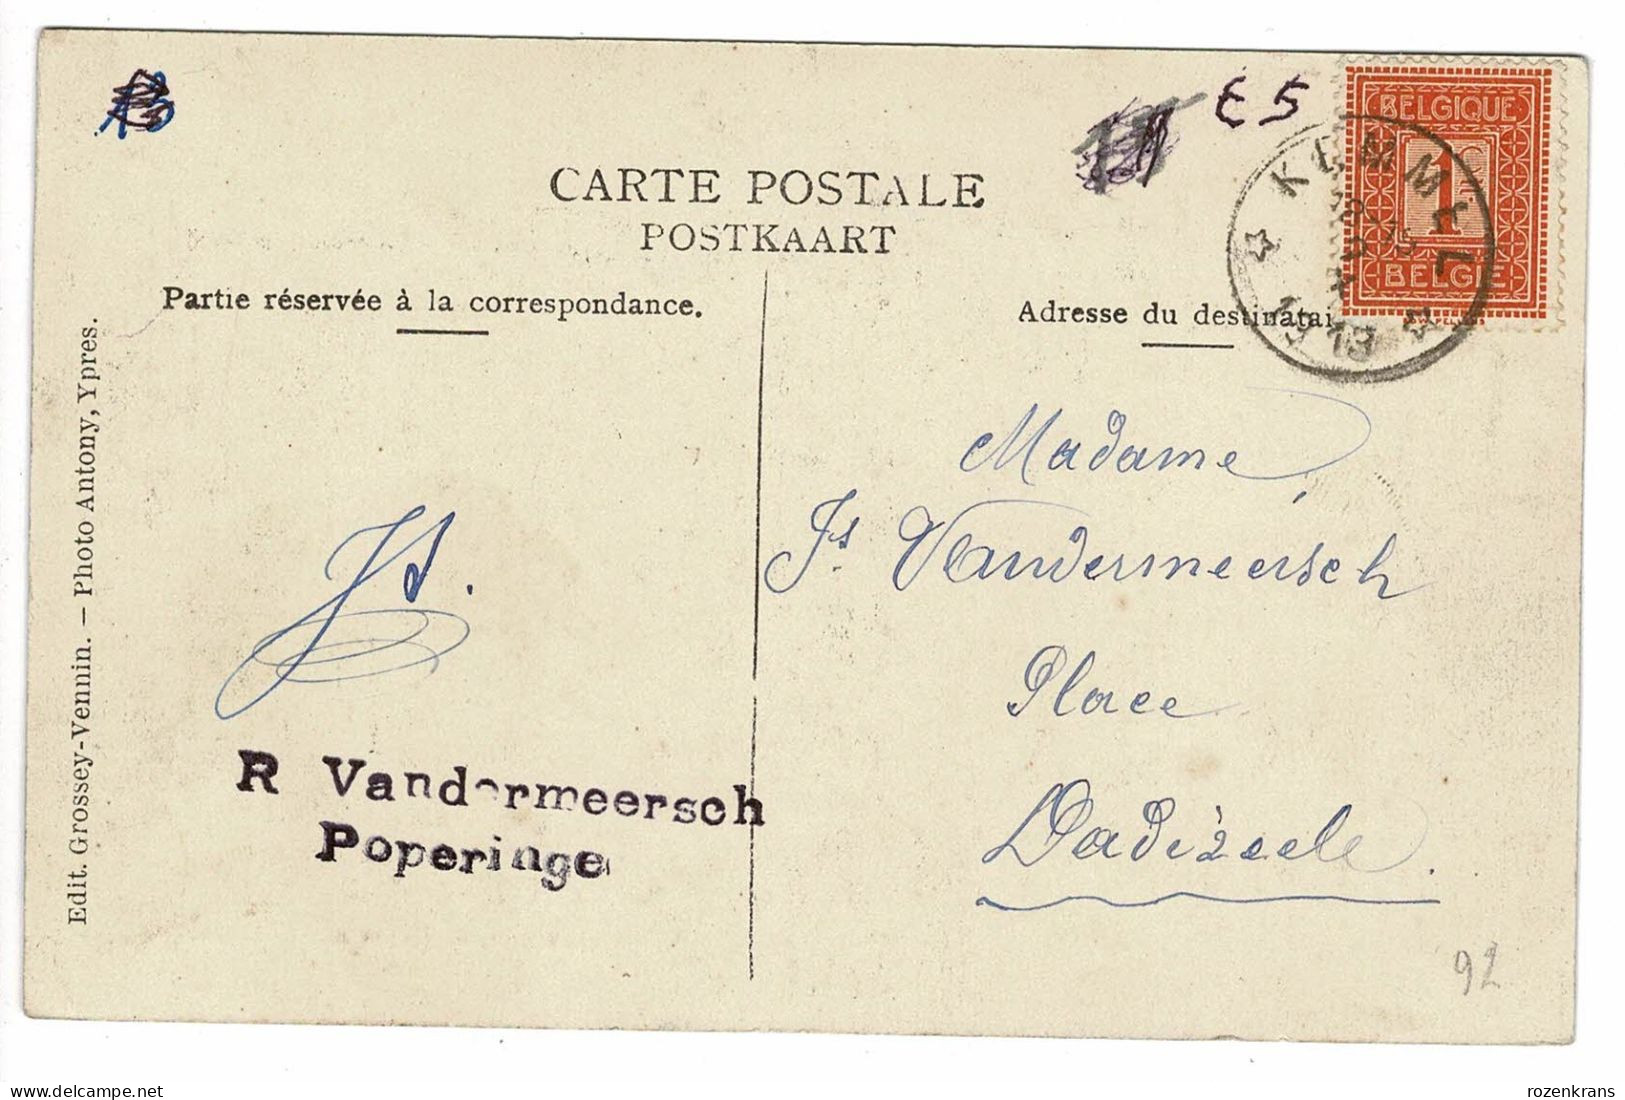 E5
BELGIQUE
1
BELGIË
KEMMEL
1913
CARTE POSTALE
POSTKAART
Partie réservée à la correspondance.
Adresse du destinatai
Edit. Grossey-Vennin. — Photo Antony, Ypres.
Madame
Js. Vandermeersch
Place
Dadizeele.
Js.
R Vandermeersch
Poperinge
92
rozenkrans